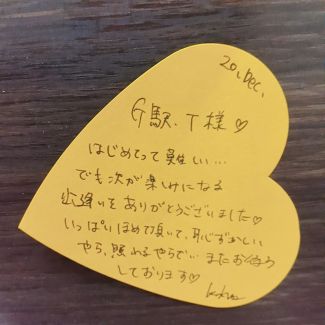 20, Dec,
G駅、T様♡
はじめてって難しい…
でも次が楽しみになる
出逢いをありがとうございました♡
いっぱいほめて頂いて、恥ずかしい
やら、照れるやらで… またお待ち
しております♡